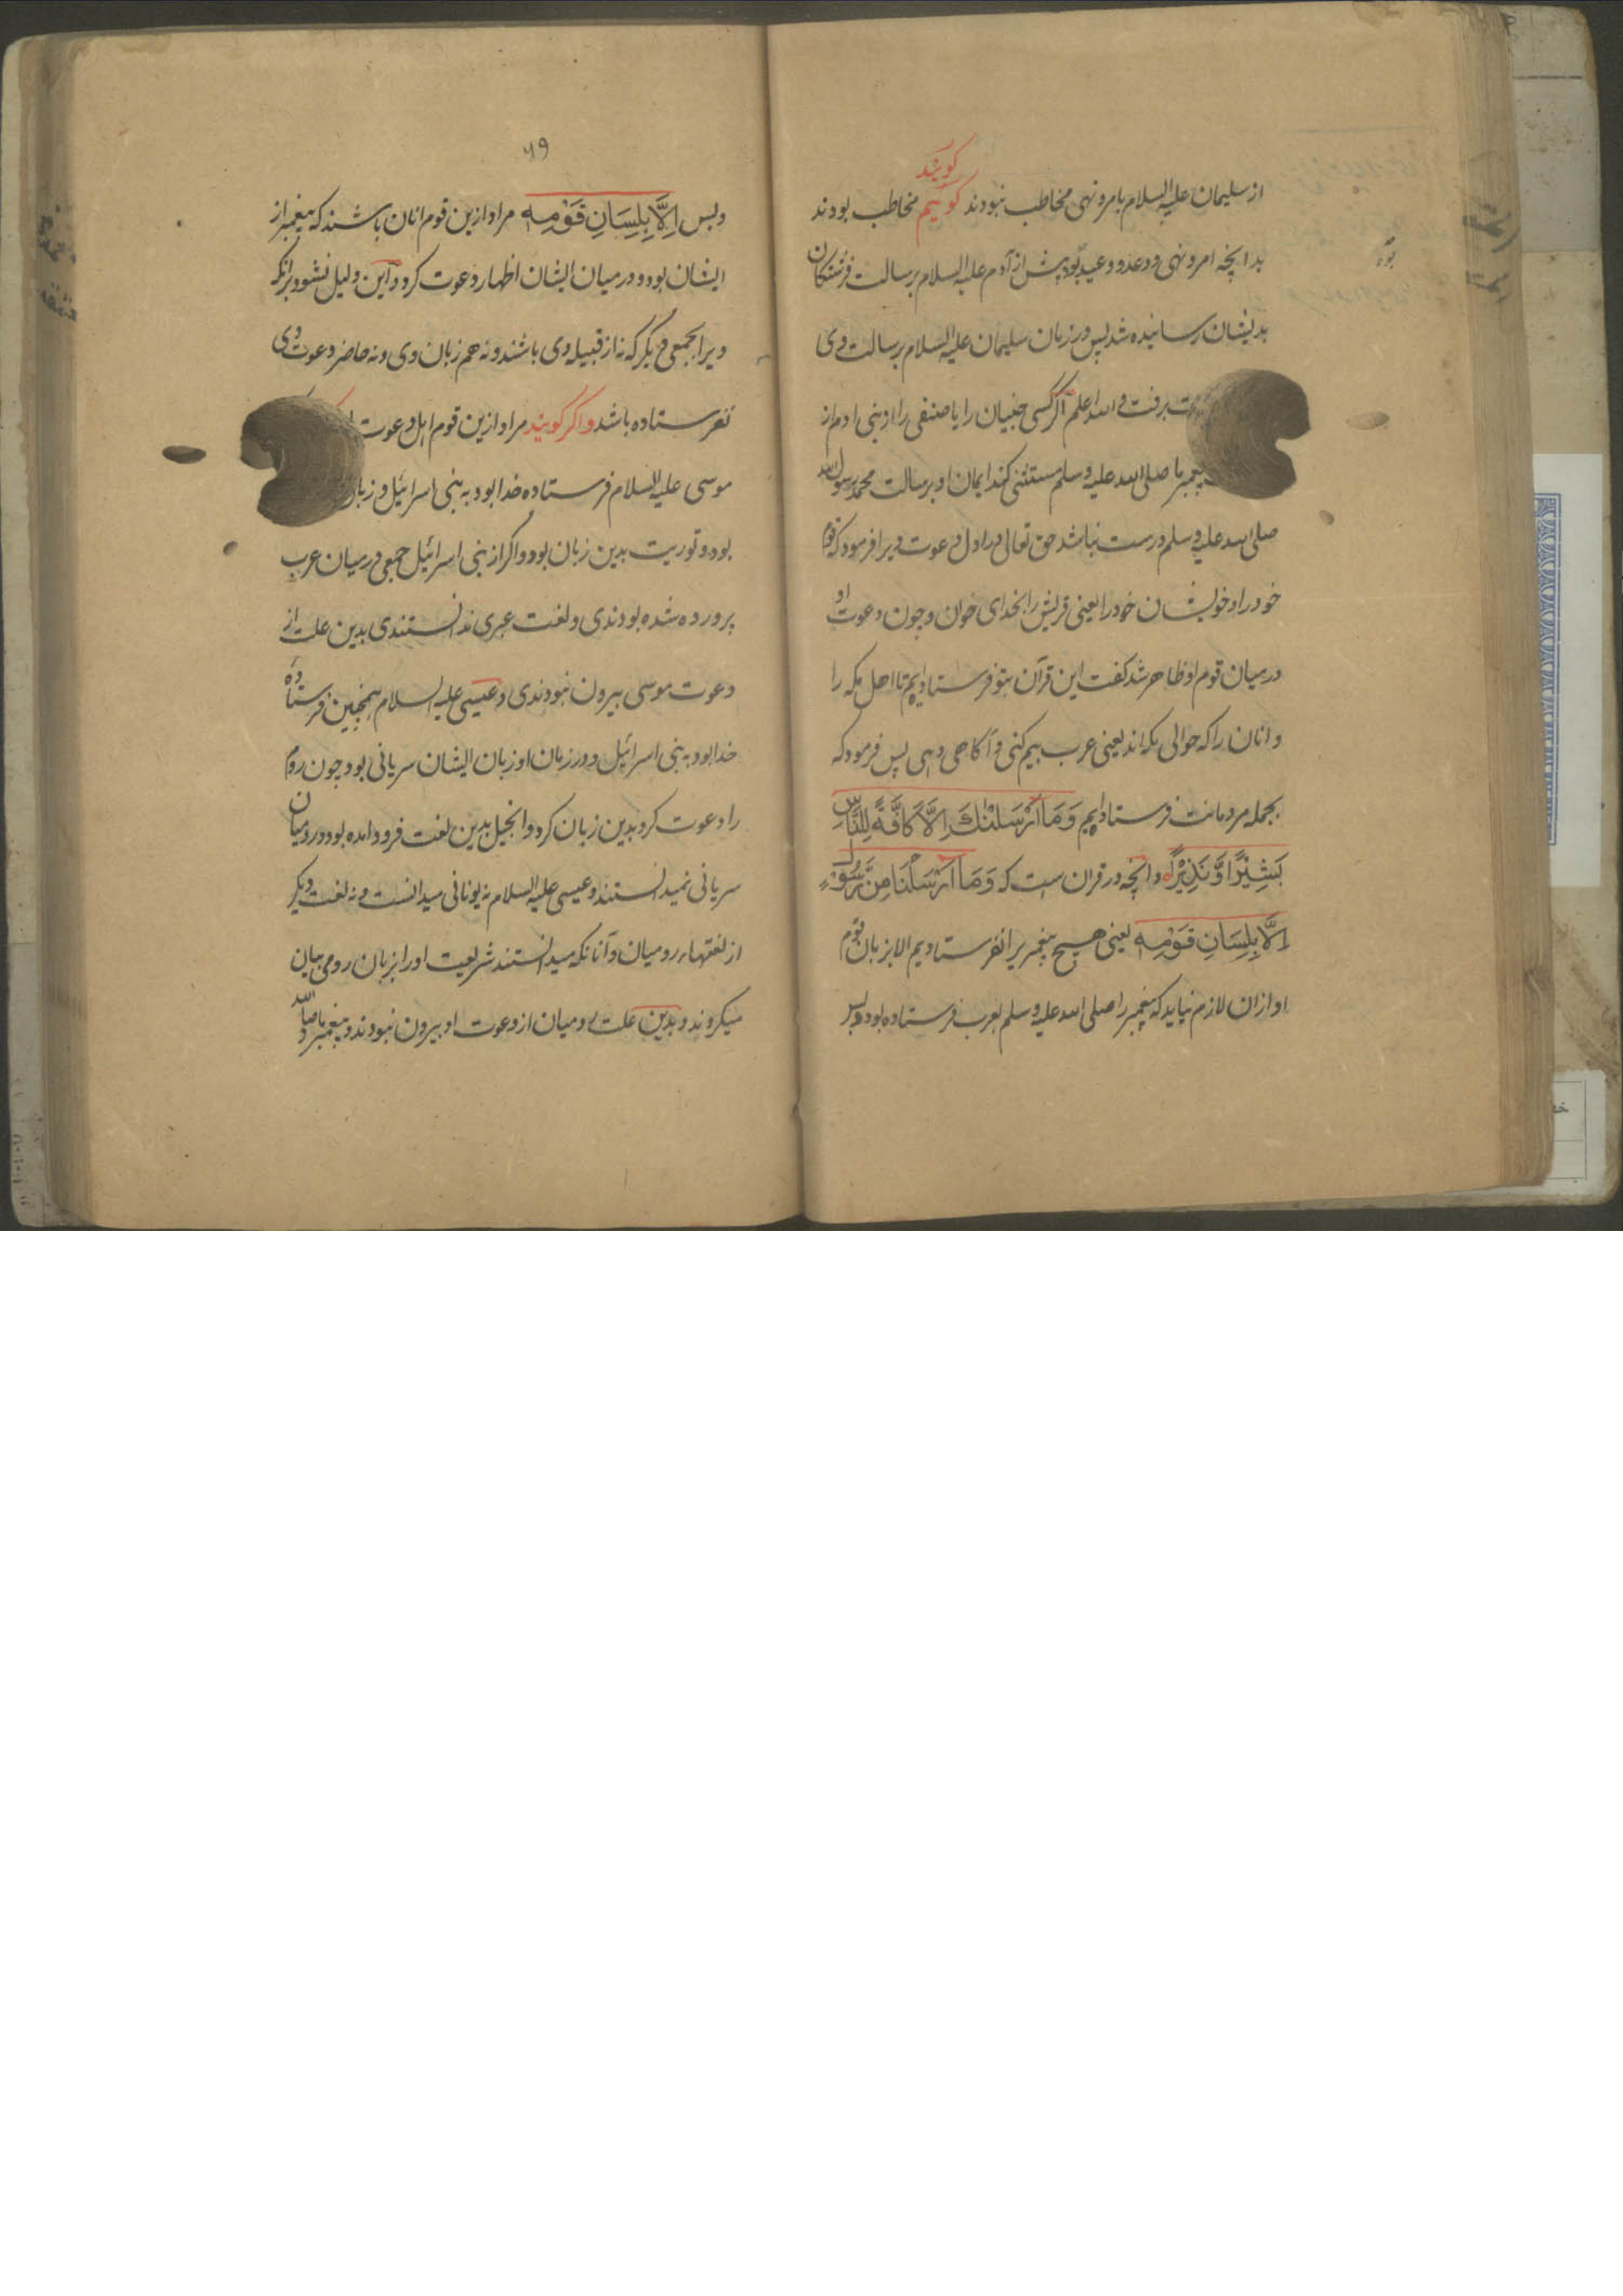 کویند
از سلیمان علیه السلام بامر و نهی مخاطب نبودند کوئیم مخاطب بودند
بدانچه امر و نهی و وعد و وعید بود پیش از آدم علیه السلام برسالت فرشتکان
بدیشان رسانیده شد پس در زمان سلیمان علیه السلام برسالت وی
برفت والله اعلم اکر کسی جنیان را یا صنفی را از بنی ادم از
پیغمبر ما صلی الله علیه وسلم مستثنی کند ایمان او برسالت محمد رسول الله
صلی الله علیه وسلم درست نباشد حق تعالی در اول دعوت ویرا فرمود که قوم
خود را و خویشان خود را یعنی قریش را بخدای خوان و چون دعوت او
در میان قوم او ظاهر شد کفت این قرآن بتو فرستادیم تا اهل مکه را
و انان را که حوالی مکه اند یعنی عرب بیم کنی و آکاهی دهی پس فرمود که
بجمله مردمانت فرستادیم وَمَا اَرْسَلْنٰكَ اِلَّا كَافَّةً لِلنَّاسِ
بَشِيْرًا وَّنَذِيْرًا و انچه در قران است که وَمَا اَرْسَلْنَا مِنْ رَّسُوْلٍ
اِلَّا بِلِسَانِ قَوْمِهٖ یعنی هیچ پیغمبر یرا نفرستادیم الا بزبان قوم
او ازان لازم نیاید که پیغمبر را صلی الله علیه وسلم بعرب فرستاده بود و بس
بود
۵۹
و بس اِلَّا بِلِسَانِ قَوْمِهٖ مراد ازین قوم انان باشند که پیغمبر از
ایشان بود و در میان ایشان اظهار دعوت کرد و این دلیل نشود برانکه
ویرا بجمعی دیکر که نه از قبیله وی باشند و نه هم زبان وی و نه حاضر دعوت وی
نفرستاده باشد و اکر کویند مراد ازین قوم اهل دعوت
موسی علیه السلام فرستاده خدا بود به بنی اسرائیل و زبان
بود و توریت بدین زبان بود و اکر از بنی اسرائیل جمعی در میان عرب
پرورده شده بودندی و لغت عبری ندانستندی بدین علت از
دعوت موسی بیرون نبودندی و عیسی علیه السلام همچنین فرستاده
خدا بود به بنی اسرائیل و در زمان او زبان ایشان سریانی بود چون روم
را دعوت کرد بدین زبان کرد و انجیل بدین لغت فرود امده بود و رومیان
سریانی نمیدانستند و عیسی علیه السلام نه یونانی میدانست و نه لغت دیکر
از لغتهاء رومیان و آنانکه میدانستند شریعت او را بزبان رومی بیان
میکردند و بدین علت رومیان از دعوت او بیرون نبودند و پیغمبر ما صلی الله